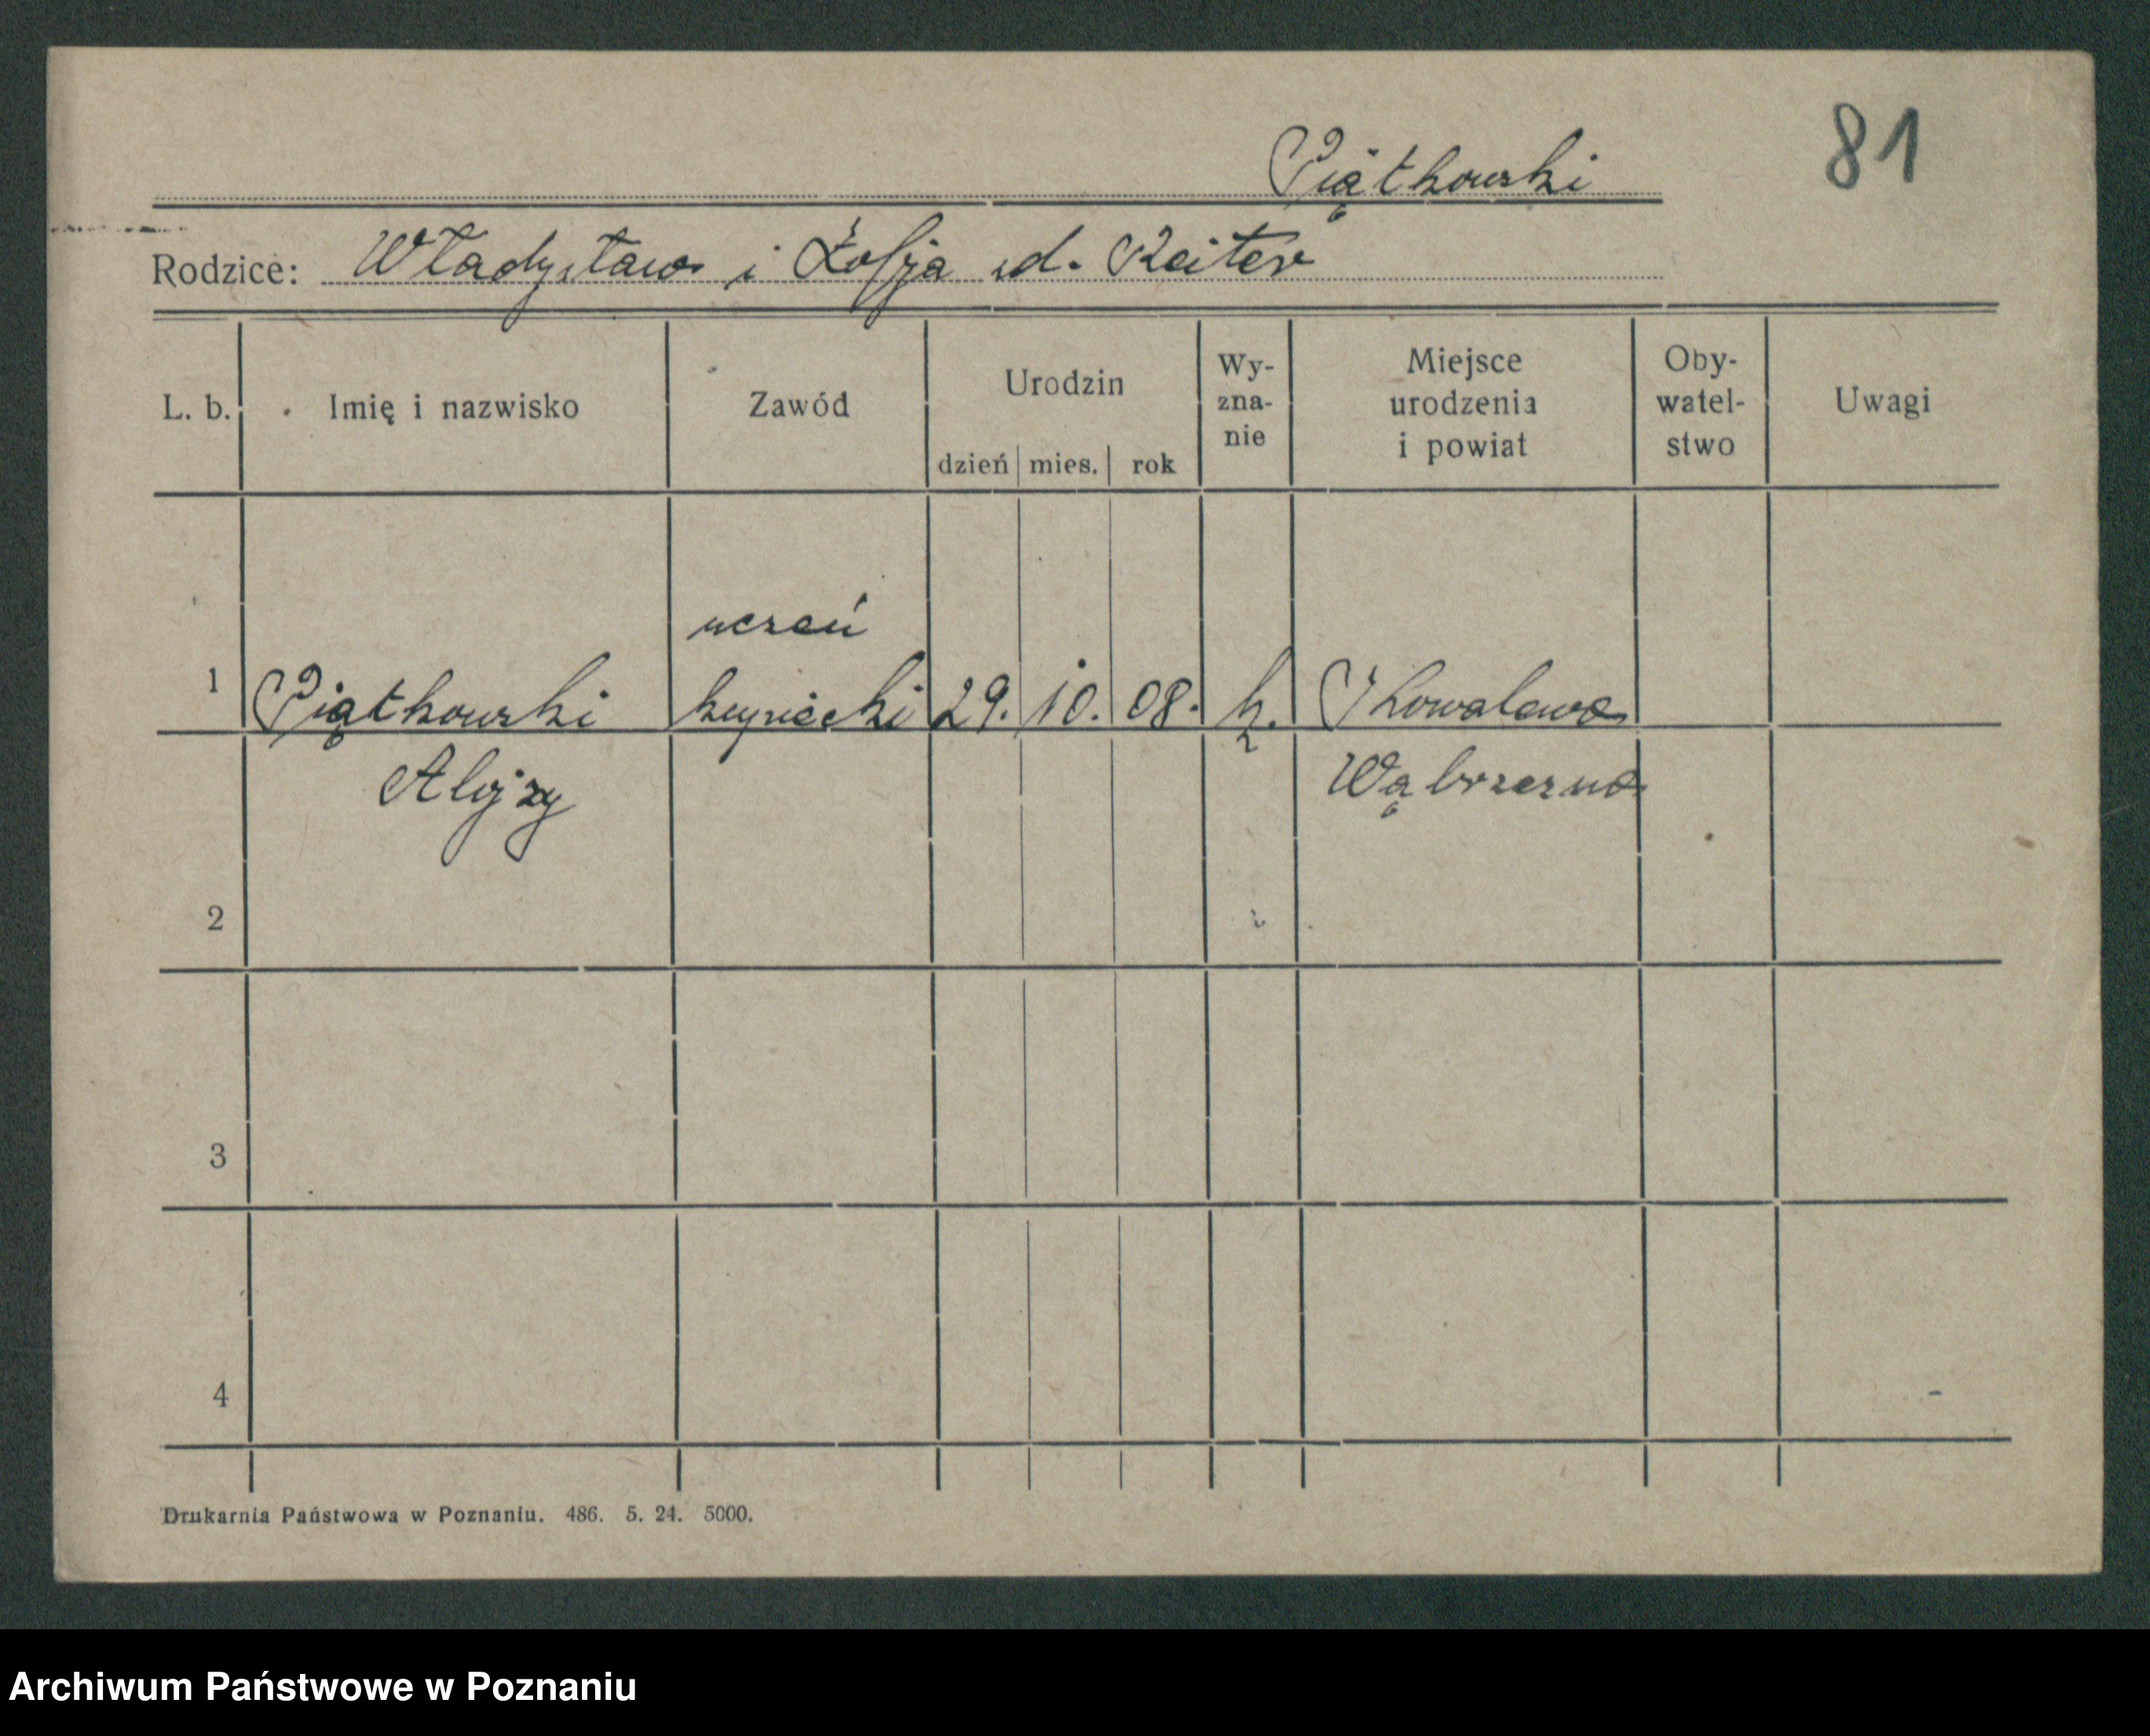 81
Piątkowski
Rodzice: Władysław i Zofja z d. Reiter
L. b. Imię i nazwisko Zawód Urodzin dzień mies. rok Wy-zna-nie Miejsce urodzenia i powiat Oby-watel-stwo Uwagi
uczeń
1 Piątkowski kupiecki 29. 10. 08. k. Kowalewo
Alojzy Wąbrzeźno
2
3
4
Drukarnia Państwowa w Poznaniu. 486. 5. 24. 5000.
Archiwum Państwowe w Poznaniu